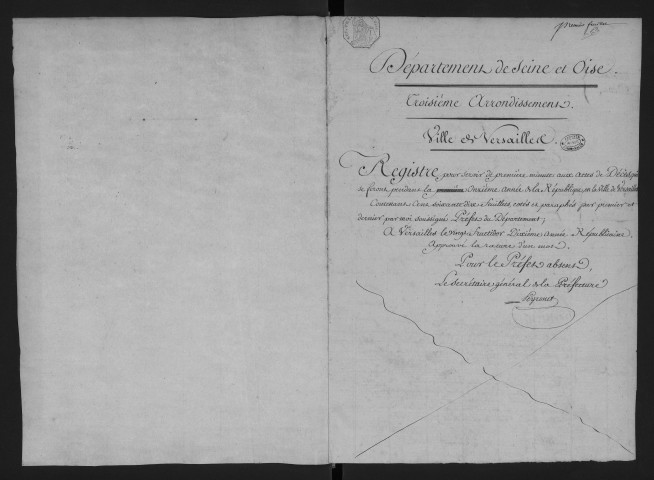 premier feuillet
Département de Seine et Oise.
Troisième Arrondissement.
Ville de Versailles.
Registre pour servir de première minute aux actes de Décès qui
se feront pendant la onzième année de la République, en la ville de Versailles
Contenant Cent soixante dix feuillets, cotés et paraphés par premier et
dernier par moi soussigné Préfet du Département;
A Versailles le vingt fructidor Dixième année Républicaine.
Approuvé la rature d'un mot.
Pour le Préfet absent,
Le Secrétaire général de la Préfecture
Peyronet